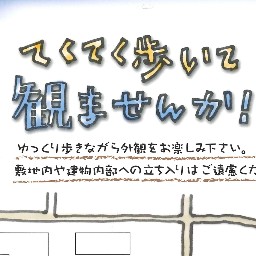 てくてく歩いて
観ませんか!
ゆっくり歩きながら外観をお楽しみ下さい。
敷地内や建物内部への立ち入りはご遠慮くだ